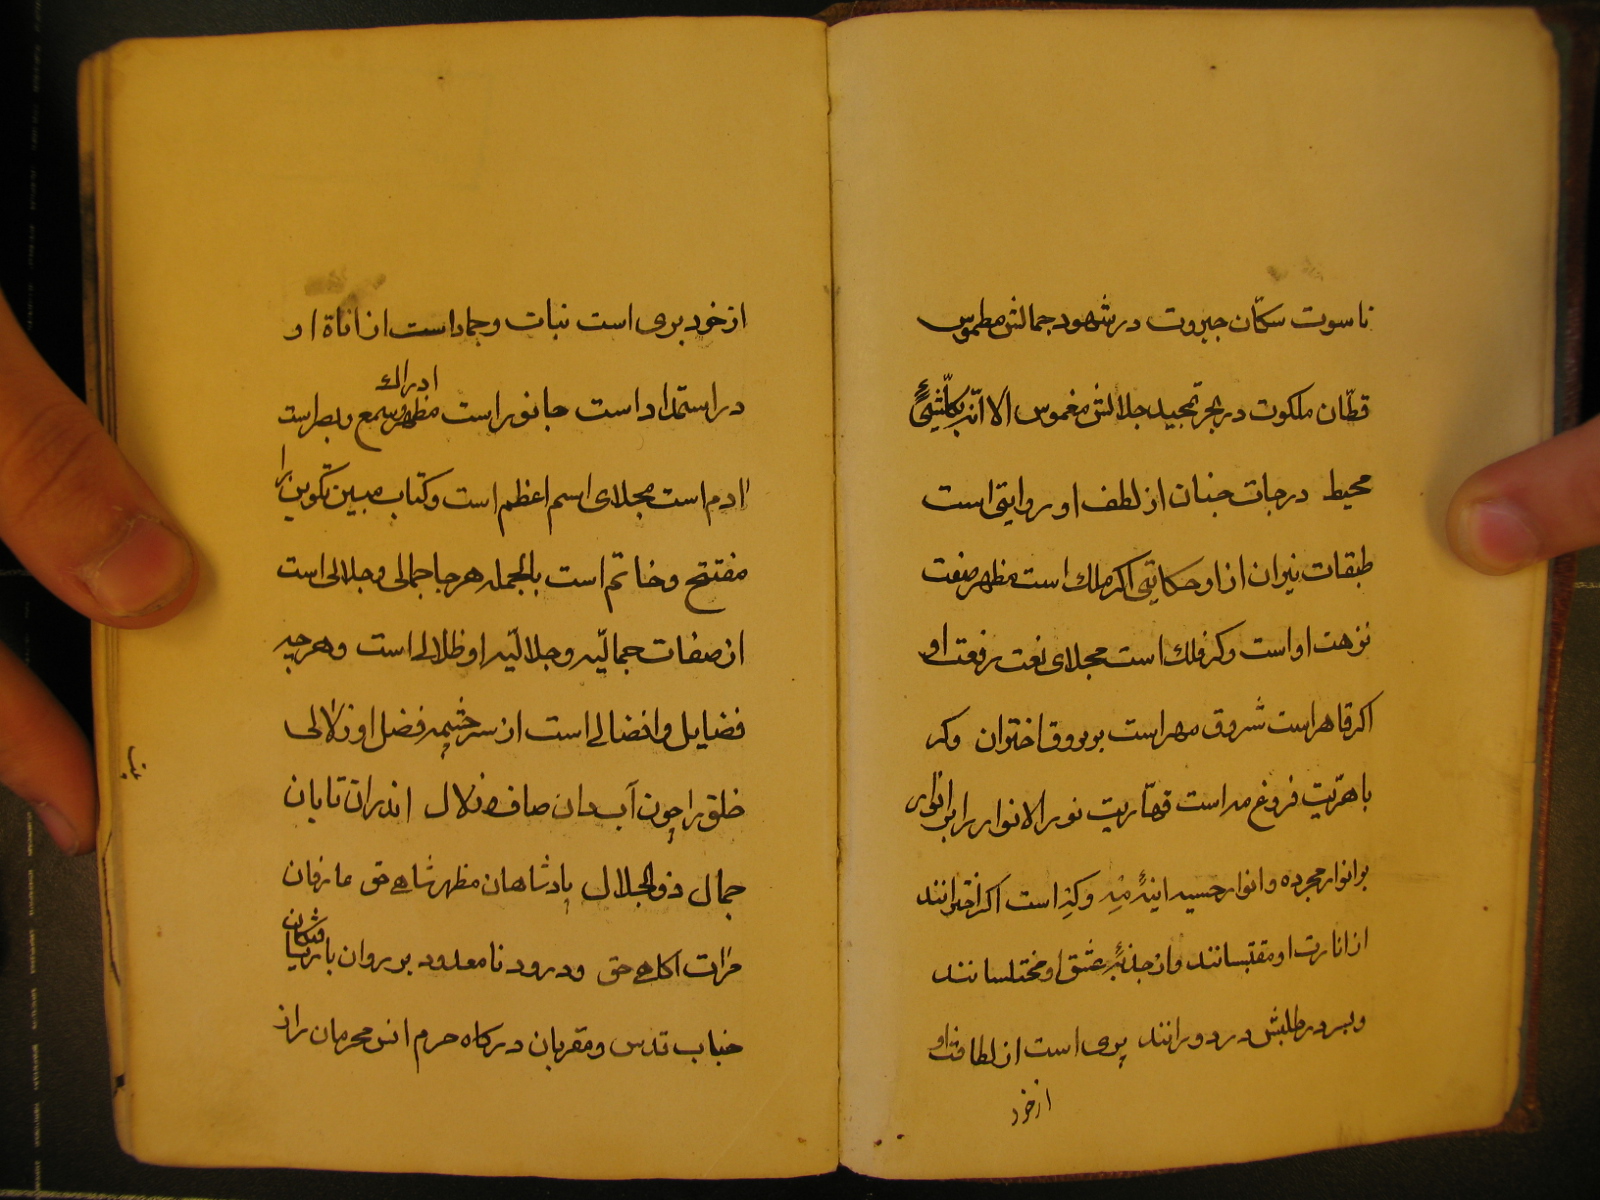 ناسوت سکّان جبروت در شهود جمالش مطموس
قطّان ملکوت در بحر تمجید جلالش مغموس الا انّه بکلّ شیءٍ
محیط درجات جنان از لطف او روایتی است
طبقات نیران از او حکایتی اکر ملک است مظهر صفت
نزهت او است وکر فلک است مجلای نعت رفعت او
اکر قاهر است شروق مهر است بر بروق اختران وکر
باهریّت فروغ مه است قهّاریت نور الانوار را بر انوار
بر انوار مجرده و انوار حسیه اینه اکر اخترانند
از انارت او مقتبسانند و از جذبهٔ عشق او مختلسانند
وبسر در طلبش در دورانند پری است از لطافت او
از خود
از خود بری است نبات و جماد است از اناة او
در استمداد است جانور است مظهر سمع و بصر است
ادراک
ادم است مجلای اسم اعظم است و کتاب مبین تکوین را
مفتتح و خاتم است بالجمله هر جا جمالی و جلالی است
از صفات جمالیّه و جلالیّه او ظلالی است و هر چه
فضایل و افضالی است از سرچشمه فضل او زلالی
خلق را چون آب دان صاف و زلال اندران تابان
جمال ذو الجلال پادشاهان مظهر شاهی حق عارفان
مرات اکاهی حق و درود نامعدود بر روان باریافتکان
جناب قدس و مقربان درکاه حرم انس محرمان راز